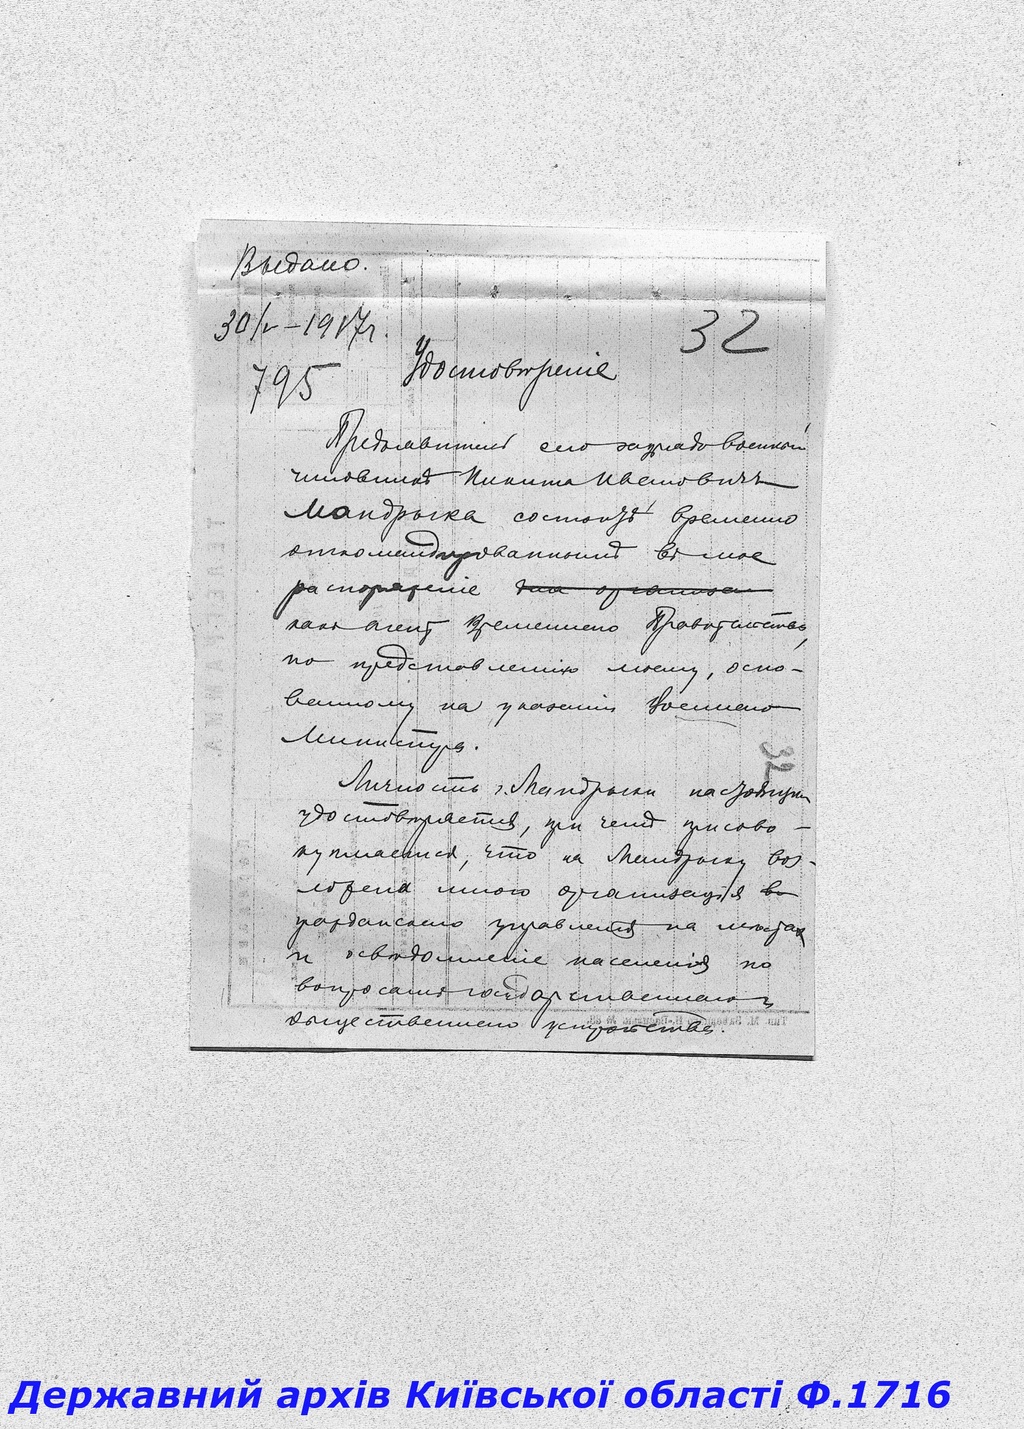 Выдано.
30/V – 1917г.
32
795
Удостовѣреніе
Предъявитель сего зауряд военный
чиновникъ Никита Ивановичъ
Мандрыка состоитъ временно
откомандированнымъ въ мое
распоряженіе для организа
какъ агентъ Временнаго Правительства,
по представленію моему, осно-
ванному на указаніи Военнаго
Министра.
32
Личность г. Мандрыки настоящимъ
удостовѣряется, при чемъ присово-
купляется, что на Мандрыку воз-
ложена мною организація
гражданскаго управленія на мѣстахъ
и освѣдомленіе населенія по
вопросамъ государственнаго и
общественнаго устройства.
Державний архів Київської області Ф.1716